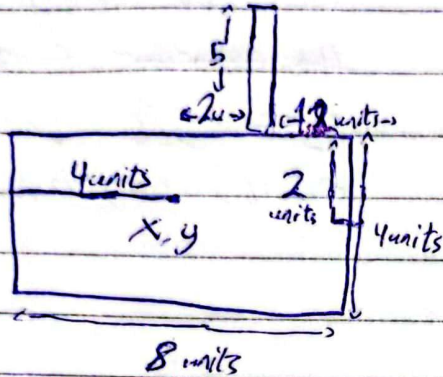 5
2u
1.8 units
4 units
2
units
x, y
4 units
8 units